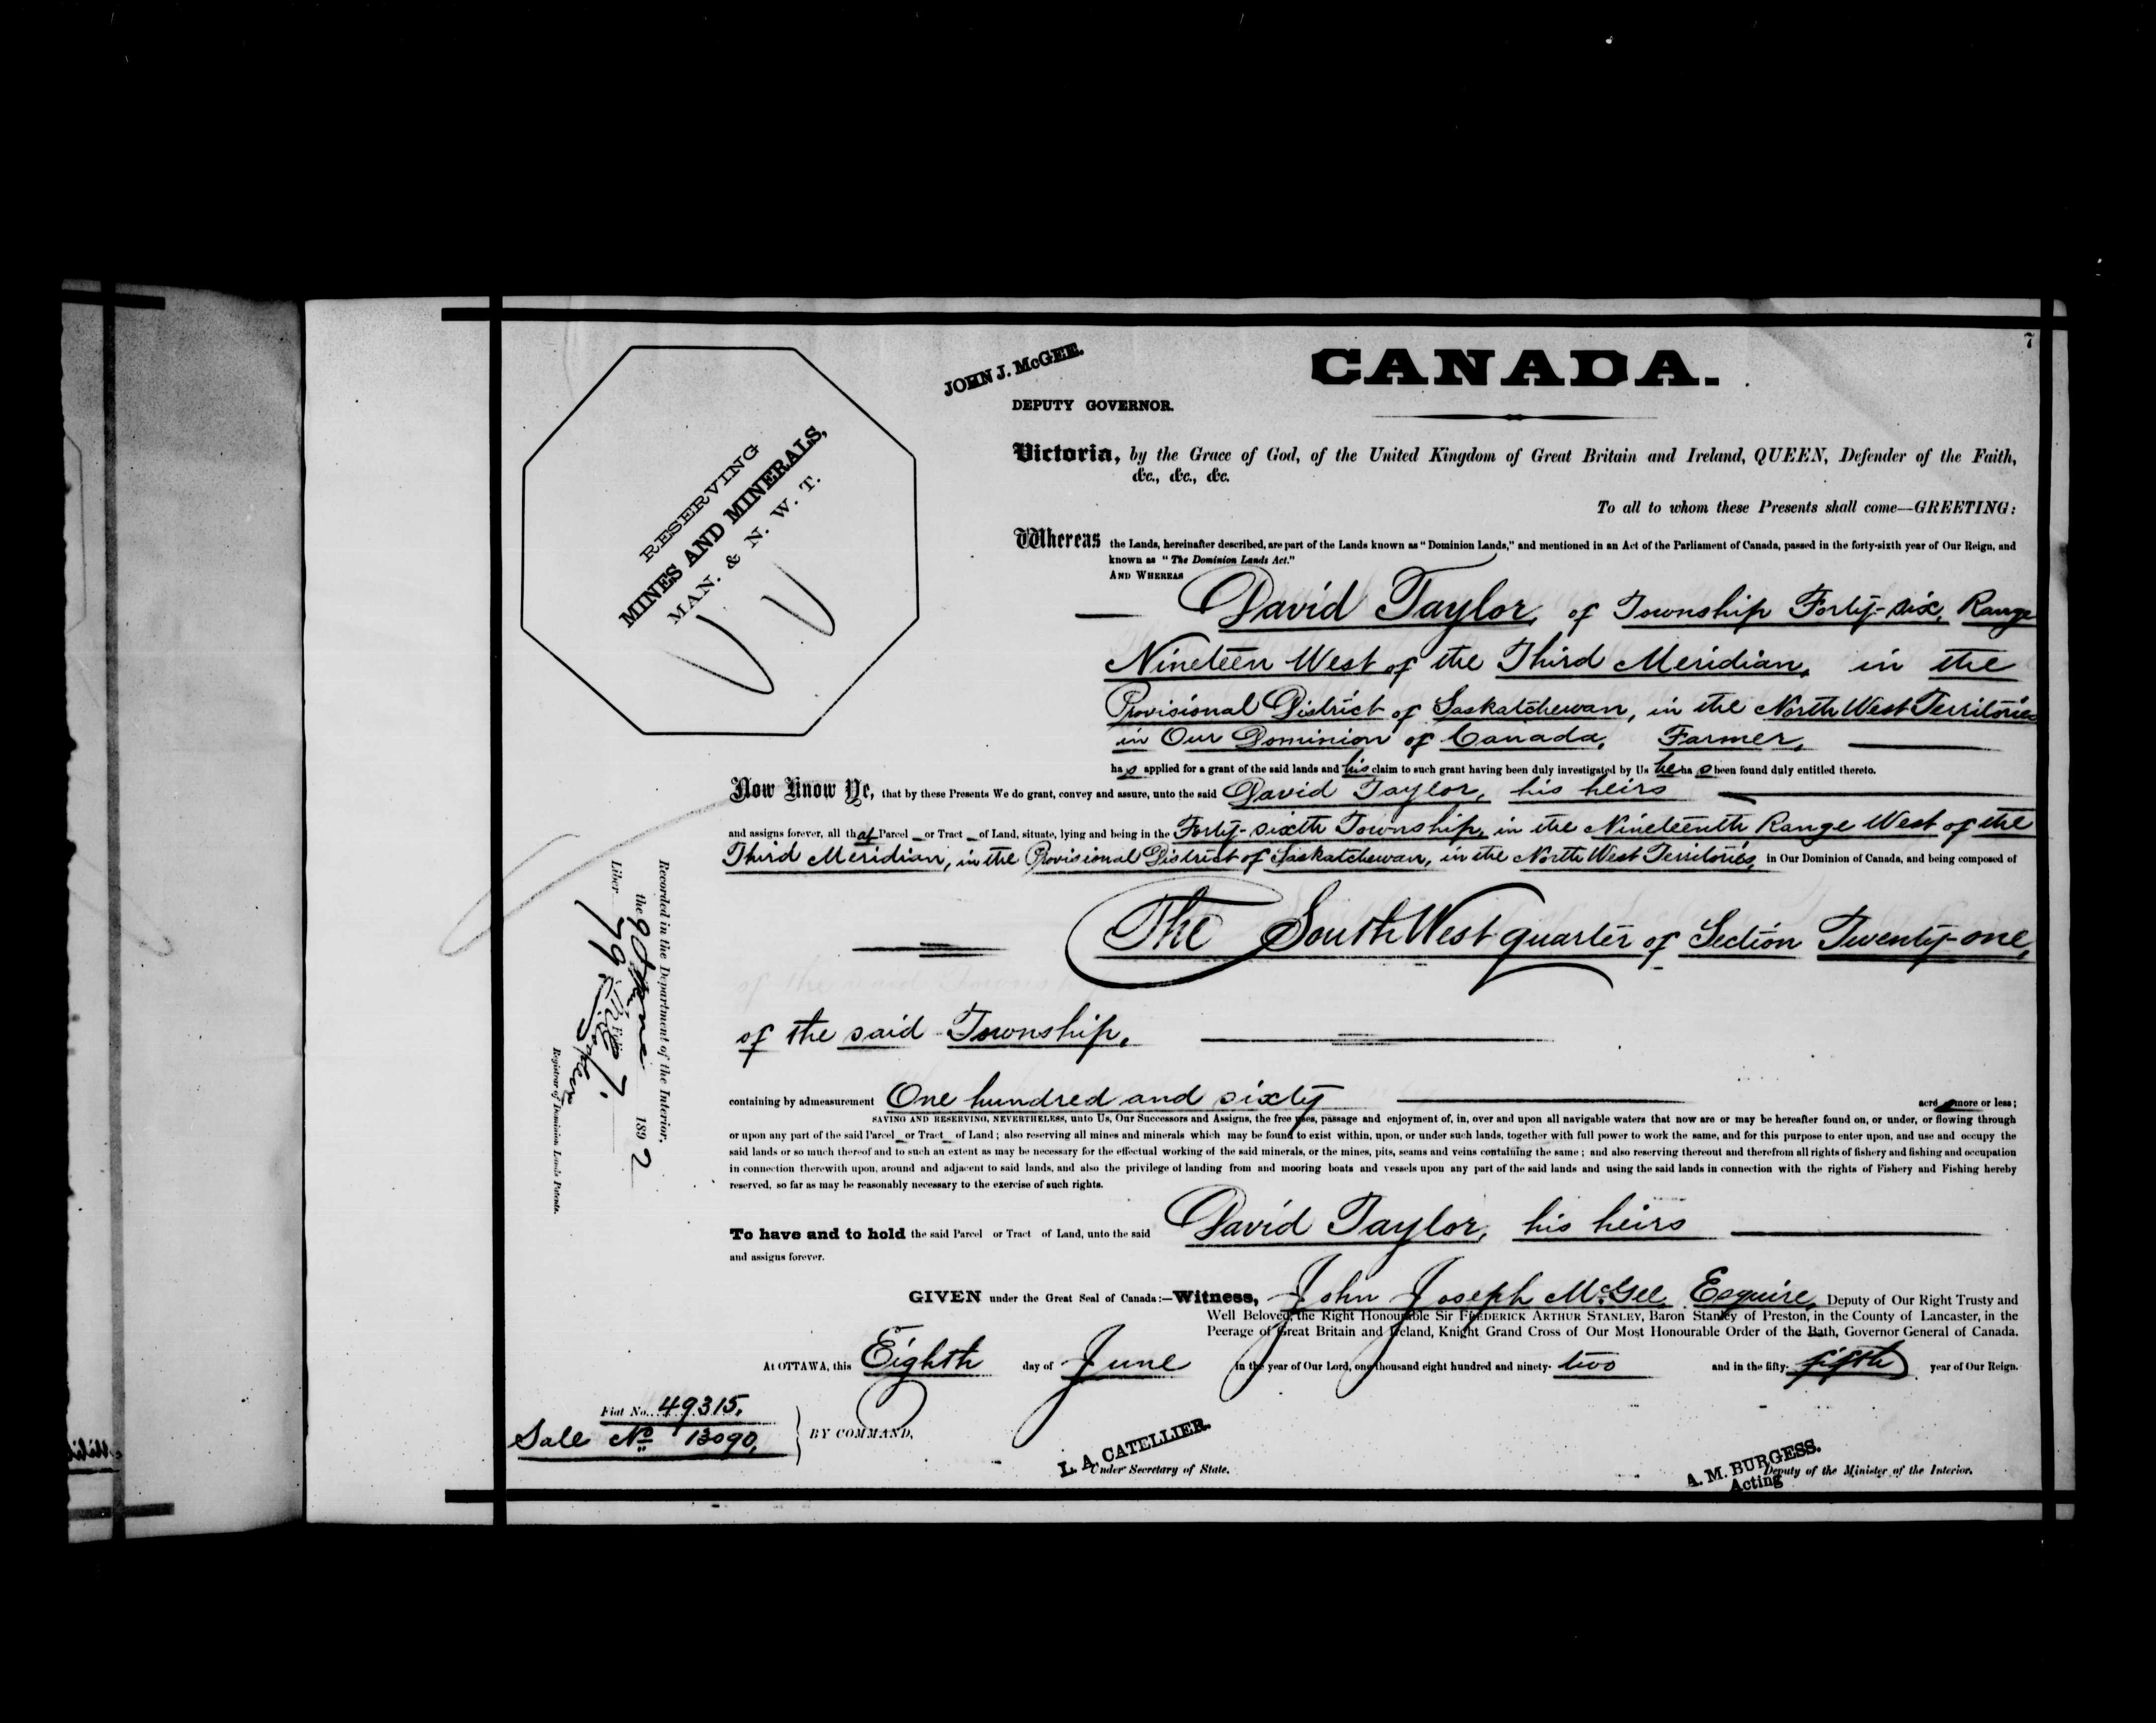 7
JOHN J. McGEE.
DEPUTY GOVERNOR.
CANADA.
RESERVING
MINES AND MINERALS,
MAN. & N. W. T.
Victoria, by the Grace of God, of the United Kingdom of Great Britain and Ireland, QUEEN, Defender of the Faith,
&c., &c., &c.
To all to whom these Presents shall come—GREETING:
Whereas the Lands, hereinafter described, are part of the Lands known as "Dominion Lands," and mentioned in an Act of the Parliament of Canada, passed in the forty-sixth year of Our Reign, and
known as "The Dominion Lands Act."
AND WHEREAS
David Taylor, of Township Forty-six, Range
Nineteen West of the Third Meridian, in the
Provisional District of Saskatchewan, in the North West Territories
in Our Dominion of Canada, Farmer,
has applied for a grant of the said lands and his claim to such grant having been duly investigated by Us he has been found duly entitled thereto.
Now Know Ye, that by these Presents We do grant, convey and assure, unto the said David Taylor, his heirs
and assigns forever, all that Parcel or Tract of Land, situate, lying and being in the Forty-sixth Township, in the Nineteenth Range West of the
Third Meridian, in the Provisional District of Saskatchewan, in the North West Territories, in Our Dominion of Canada, and being composed of
The South West quarter of Section Twenty-one,
of the said Township,
containing by admeasurement One hundred and sixty acres more or less;
SAVING AND RESERVING, NEVERTHELESS, unto Us, Our Successors and Assigns, the free uses, passage and enjoyment of, in, over and upon all navigable waters that now are or may be hereafter found on, or under, or flowing through
or upon any part of the said Parcel or Tract of Land; also reserving all mines and minerals which may be found to exist within, upon, or under such lands, together with full power to work the same, and for this purpose to enter upon, and use and occupy the
said lands or so much thereof and to such an extent as may be necessary for the effectual working of the said minerals, or the mines, pits, seams and veins containing the same; and also reserving thereout and therefrom all rights of fishery and fishing and occupation
in connection therewith upon, around and adjacent to said lands, and also the privilege of landing from and mooring boats and vessels upon any part of the said lands and using the said lands in connection with the rights of Fishery and Fishing hereby
reserved, so far as may be reasonably necessary to the exercise of such rights.
To have and to hold the said Parcel or Tract of Land, unto the said David Taylor, his heirs
and assigns forever.
GIVEN under the Great Seal of Canada:—Witness, John Joseph McGee, Esquire, Deputy of Our Right Trusty and
Well Beloved, the Right Honourable Sir FREDERICK ARTHUR STANLEY, Baron Stanley of Preston, in the County of Lancaster, in the
Peerage of Great Britain and Ireland, Knight Grand Cross of Our Most Honourable Order of the Bath, Governor General of Canada.
At OTTAWA, this Eighth day of June in the year of Our Lord, one thousand eight hundred and ninety-two and in the fifty-fifth year of Our Reign.
Fiat No. 49315.
Sale No 13090,
BY COMMAND,
L. A. CATELLIER.
Under Secretary of State.
A. M. BURGESS.
Acting Deputy of the Minister of the Interior.
Recorded in the Department of the Interior,
the 9 June 1892
Liber 79 Folio 7.
Registrar of Dominion Lands Patents.